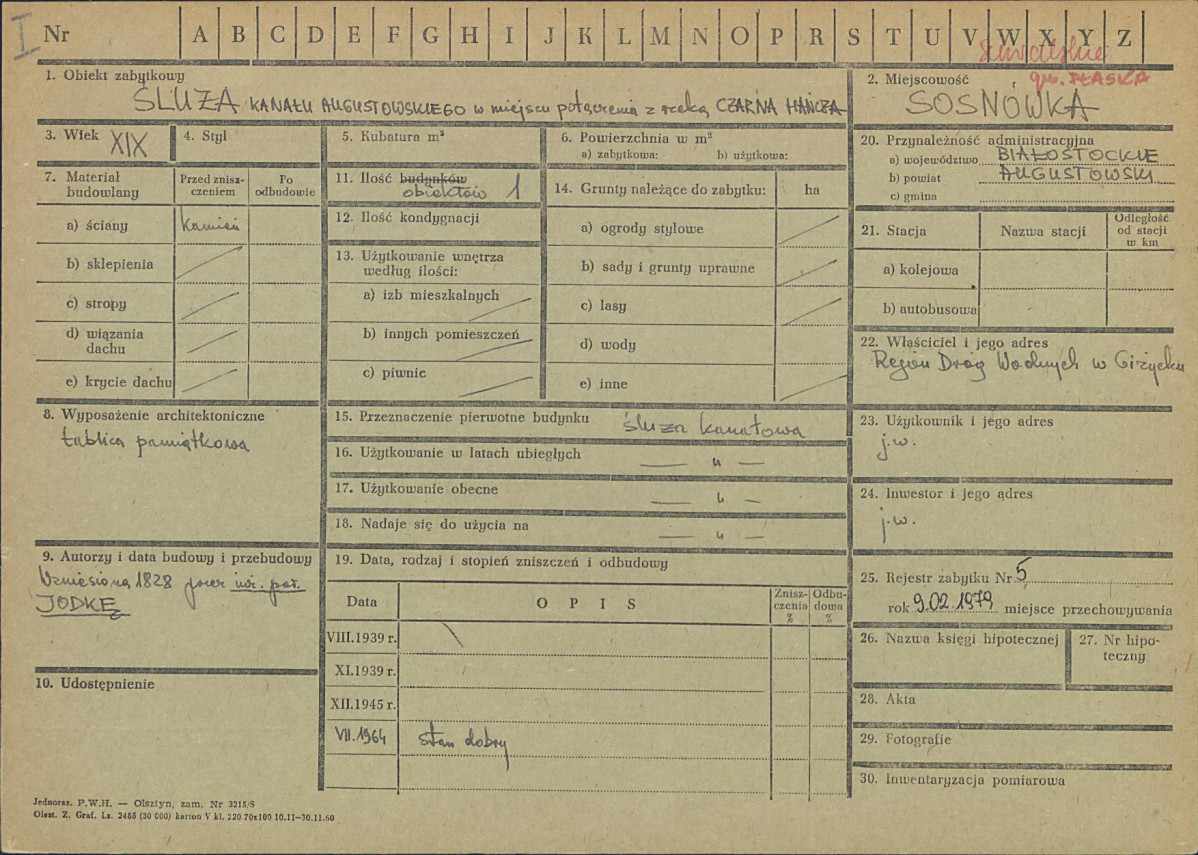 I
Nr A B C D E F G H I J K L M N O P R S T U V W X Y Z
suwalskie
gm. PŁASKA
1. Obiekt zabytkowy
ŚLUZA KANAŁU AUGUSTOWSKIEGO w miejscu połączenia z rzeką CZARNA HAŃCZA
2. Miejscowość
SOSNÓWKA
3. Wiek XIX
4. Styl
5. Kubatura m³
6. Powierzchnia w m²
a) zabytkowa: b) użytkowa:
7. Materiał budowlany
Przed zniszczeniem
Po odbudowie
a) ściany kamień
b) sklepienia
c) stropy
d) wiązania dachu
e) krycie dachu
8. Wyposażenie architektoniczne
tablica pamiątkowa
9. Autorzy i data budowy i przebudowy
Wzniesiona 1828 przez inż. por.
JODKĘ
10. Udostępnienie
11. Ilość budynków
obiektów 1
12. Ilość kondygnacji
13. Użytkowanie wnętrza
według ilości:
a) izb mieszkalnych
b) innych pomieszczeń
c) piwnic
14. Grunty należące do zabytku: ha
a) ogrody stylowe
b) sady i grunty uprawne
c) lasy
d) wody
e) inne
15. Przeznaczenie pierwotne budynku śluza kanałowa
16. Użytkowanie w latach ubiegłych — „ —
17. Użytkowanie obecne — „ —
18. Nadaje się do użycia na — „ —
19. Data, rodzaj i stopień zniszczeń i odbudowy
Data OPIS Zniszczenia % Odbudowa %
VIII.1939 r.
XI.1939 r.
XII.1945 r.
VII.1964 stan dobry
20. Przynależność administracyjna
a) województwo BIAŁOSTOCKIE
b) powiat AUGUSTOWSKI
c) gmina
21. Stacja Nazwa stacji Odległość od stacji w km
a) kolejowa
b) autobusowa
22. Właściciel i jego adres
Rejon Dróg Wodnych w Giżycku
23. Użytkownik i jego adres
j.w.
24. Inwestor i jego adres
j.w.
25. Rejestr zabytku Nr 5
rok 9.02.1979 miejsce przechowywania
26. Nazwa księgi hipotecznej
27. Nr hipoteczny
28. Akta
29. Fotografie
30. Inwentaryzacja pomiarowa
Jednoraz. P.W.H. — Olsztyn, zam. Nr 3215/S
Olszt. Z. Graf. Lz. 2485 (30 000) karton V kl. 220 70x100 10.11—30.11.60